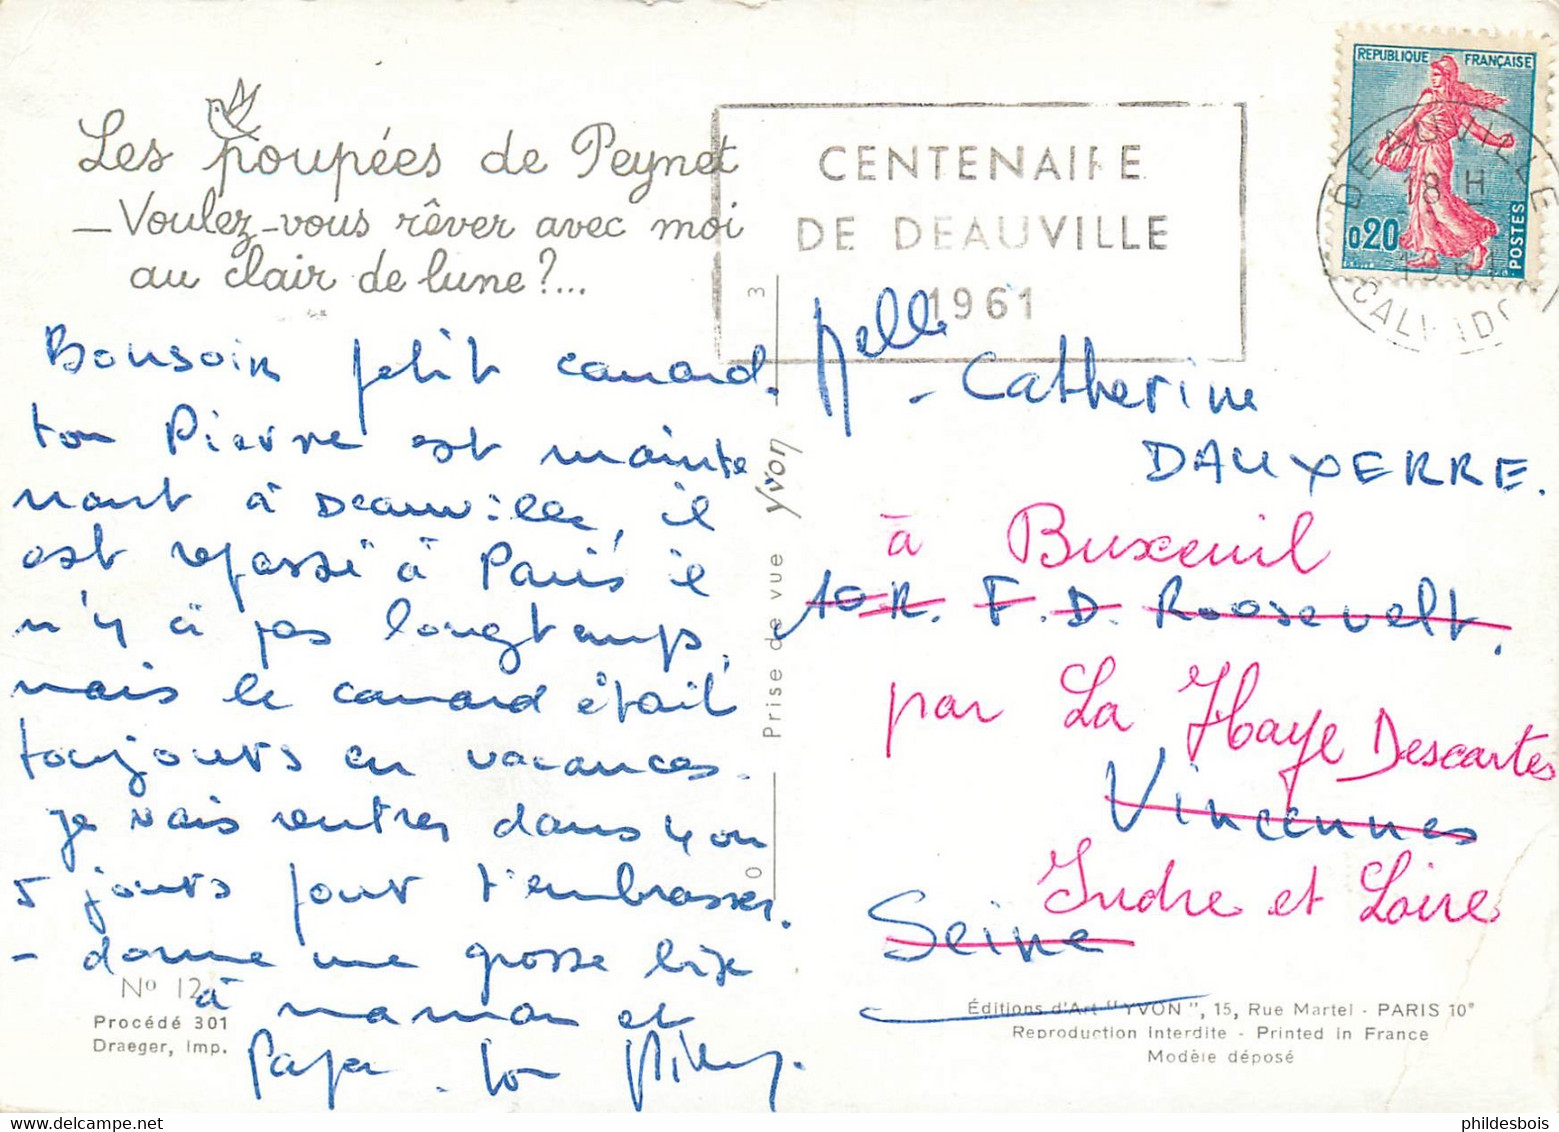 Les poupées de Peynet
— Voulez-vous rêver avec moi
au clair de lune ?...
CENTENAIRE
DE DEAUVILLE
1961
REPUBLIQUE FRANÇAISE
0,20
POSTES
DEAUVILLE
18 H
CALVADOS
Bonsoir petit canard.
ton Pierre est mainte
nant à Deauville, il
est repassé à Paris il
n'y a pas longtemps,
mais le canard était
toujours en vacances.
je vais rentrer dans 4 ou
5 jours pour t'embrasser.
- donne une grosse bise
à maman et
Papa. ton
Melle
- Catherine
DAUXERRE.
à Buxeuil
10 R. F. D. Roosevelt.
par La Haye Descartes
Vincennes
Indre et Loire
Seine
3
Yvon
Prise de vue
0
No 12
Procédé 301
Draeger, imp.
Éditions d'Art "YVON", 15, Rue Martel - PARIS 10e
Reproduction Interdite - Printed in France
Modèle déposé
phildesbois